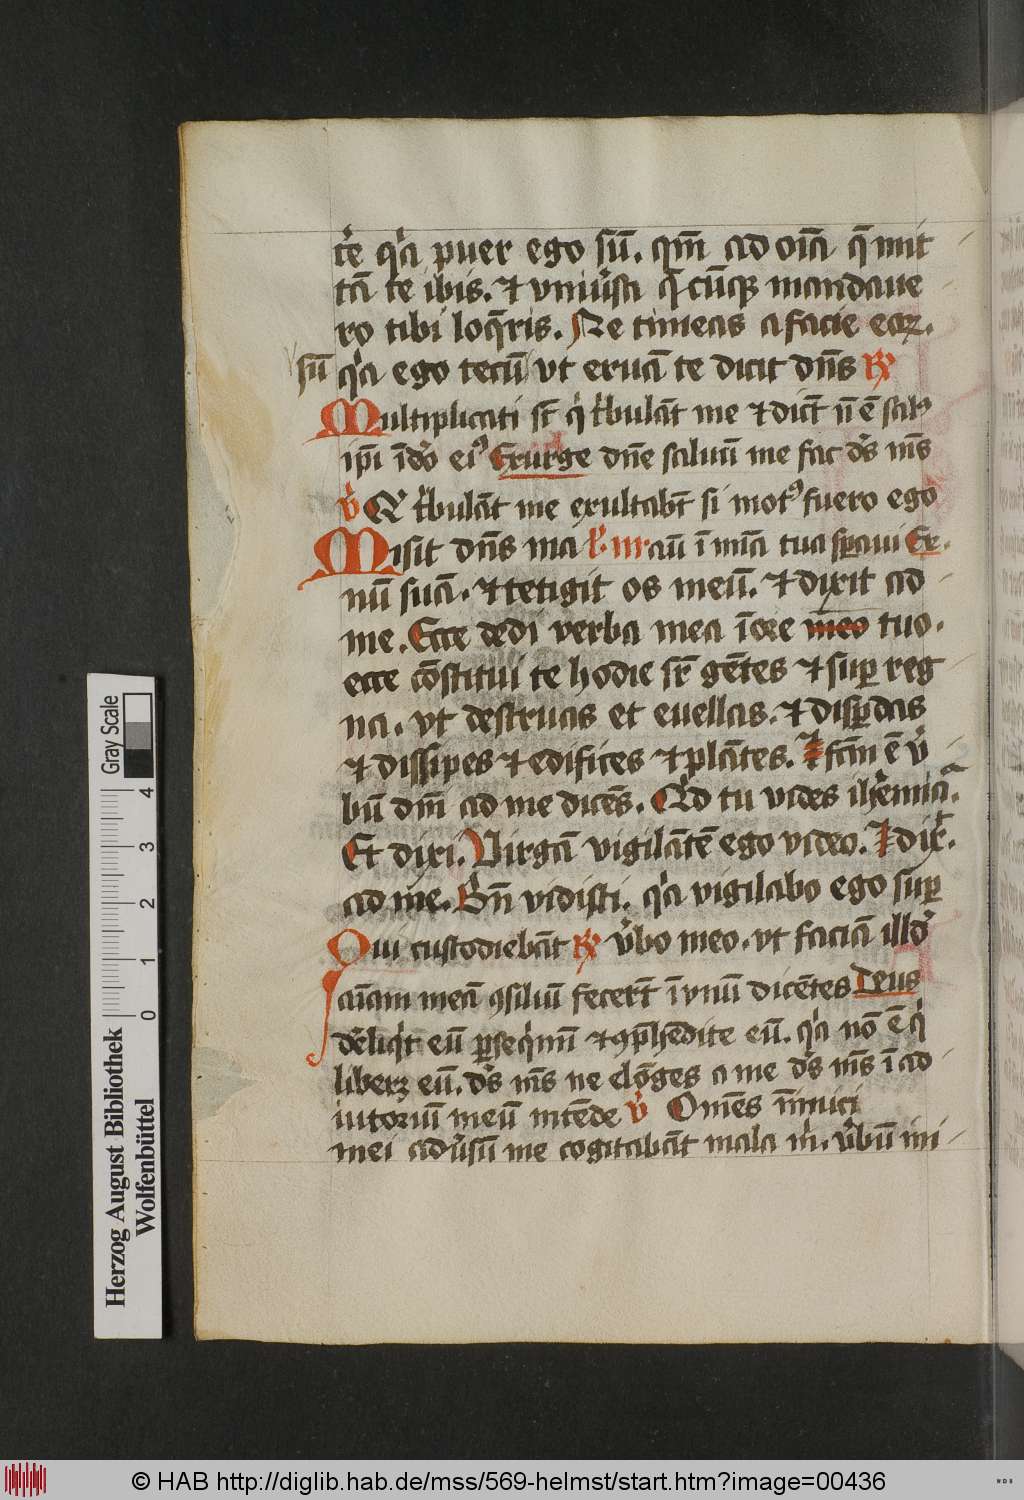 cꝛ̄e qͥa puer ego sū. qm̄ ad oīa q̄ mit
tā te ibis. ⁊ vniūsa q̄cūqꝫ mandaue
ro tibi loq̄ris. Ne timeas a facie eoꝝ.
sū qͥa ego tecū vt eruā te dicit dn̄s ℟
Multiplicati st̄ qͥ tͥbulāt me ⁊ dict̄ n̄ ē salꝰ
ip̄i ī dō eiꝰ Exurge dn̄e saluū me fac ds̄ ms̄
v̄ Qͥ tͥbulāt me exultabt̄ si motꝰ fuero ego
Misit dn̄s ma aū ī mīa tua sꝑaui Ex.
nū suā. ⁊ tetigit os meū. ⁊ dixit ad
me. Ecce dedi verba mea ī ore meo tuo.
ecce cōstitui te hodie sr̄ gētes ⁊ suꝑ reg
na. vt destruas et euellas. ⁊ disꝑdas
⁊ dissipes ⁊ edifices ⁊ plātes. ⁊ fcm̄ ē v̄
bū dm̄ ad me dicēs. Qd tu vides ih̄remia.
Et dixi. Virgā vigilātē ego video. ⁊ dix̄.
ad me. Bn̄ vidisti. qͥa vigilabo ego suꝑ
Qui custodiebāt ℟ v̄bo meo. vt faciā illd̄
aīam meā ꝯsiliū fecert̄ ī vnū dicētes Deus
dēliqͥt eū ꝑseqͥmī ⁊ ꝯp̄hēdite eū. qͥa nō ē qͥ
liberꝫ eū. ds̄ ms̄ ne elōges a me ds̄ ms̄ ī ad
iutoriū meū intēde v̄ Omēs īimici
mei adūsū me cogitabāt mala m̄. v̄bū ini
Gray Scale
0 1 2 3 4
Herzog August Bibliothek
Wolfenbüttel
© HAB http://diglib.hab.de/mss/569-helmst/start.htm?image=00436